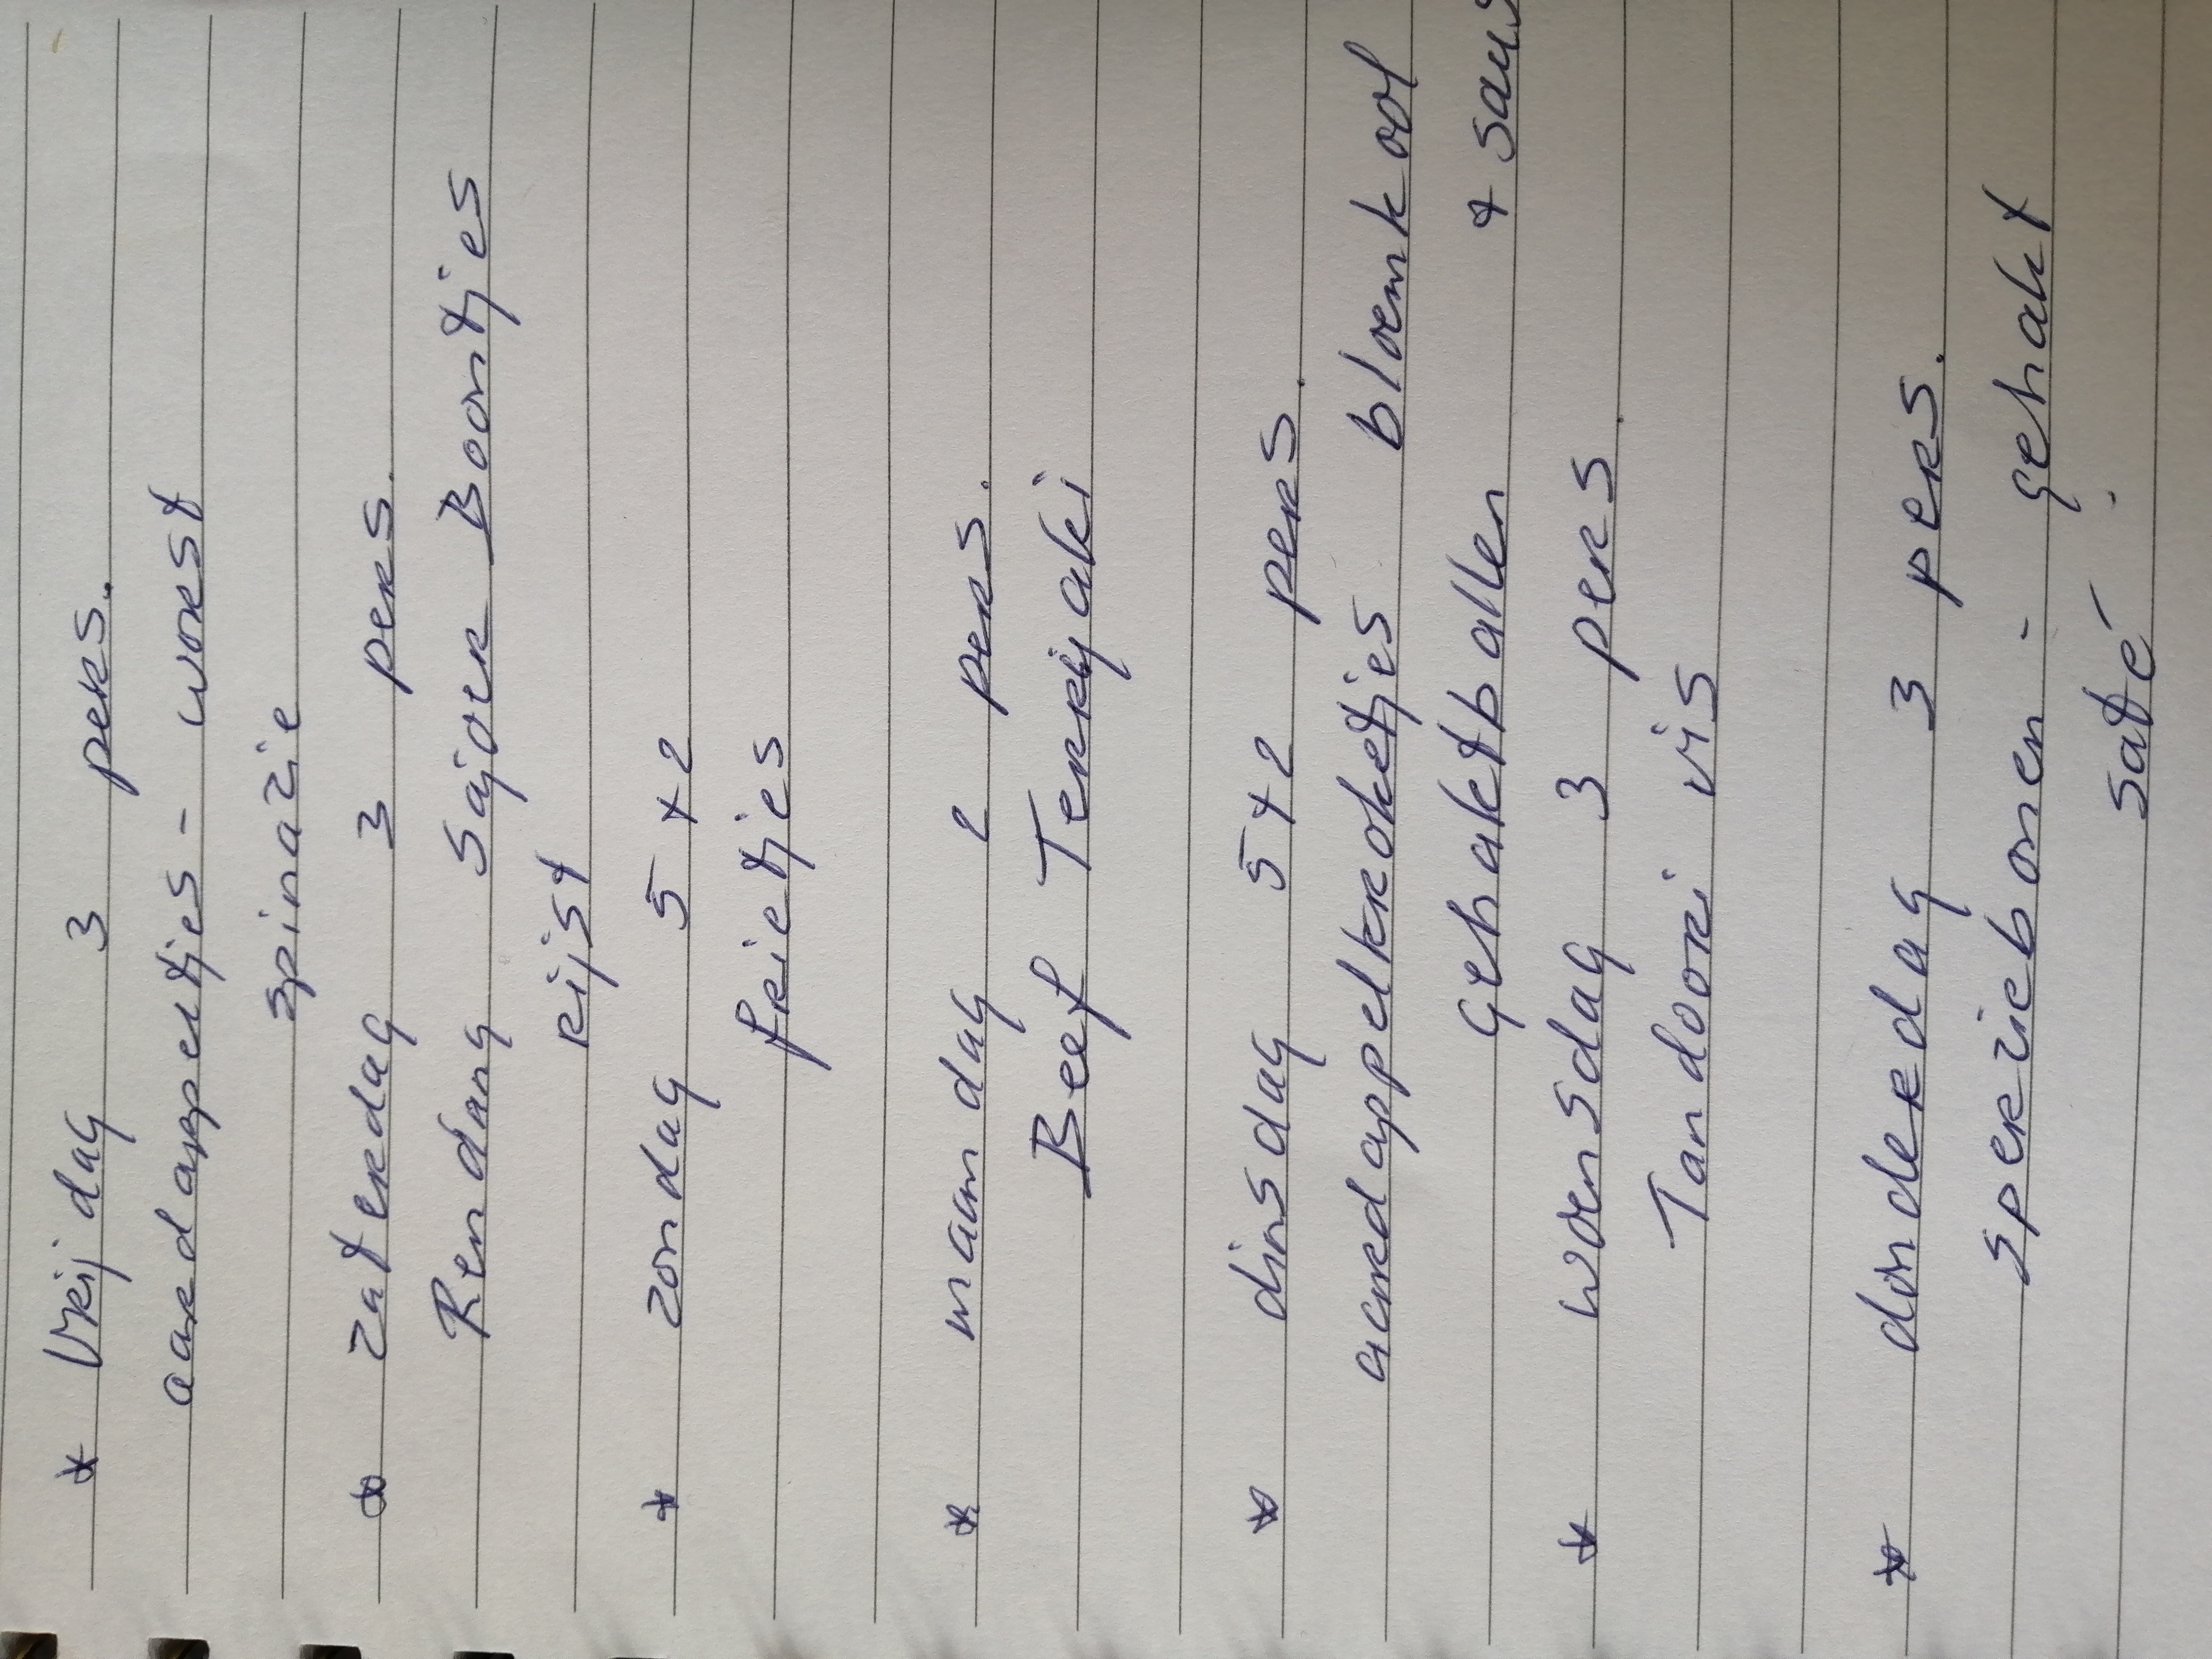 * Vrijdag 3 pers.
aardappeltjes - worst
spinazie
* zaterdag 3 pers.
Rendang sajoer Boontjes
rijst
* zondag 5 + 2
frietjes
* maandag 2 pers.
Beef Terriyaki
* dinsdag 5 + 2 pers.
aardappelkroketjes bloemkool
gehaktballen + saus
* woensdag 3 pers.
Tandoori vis
* donderdag 3 pers.
sperziebonen - gehakt
saté